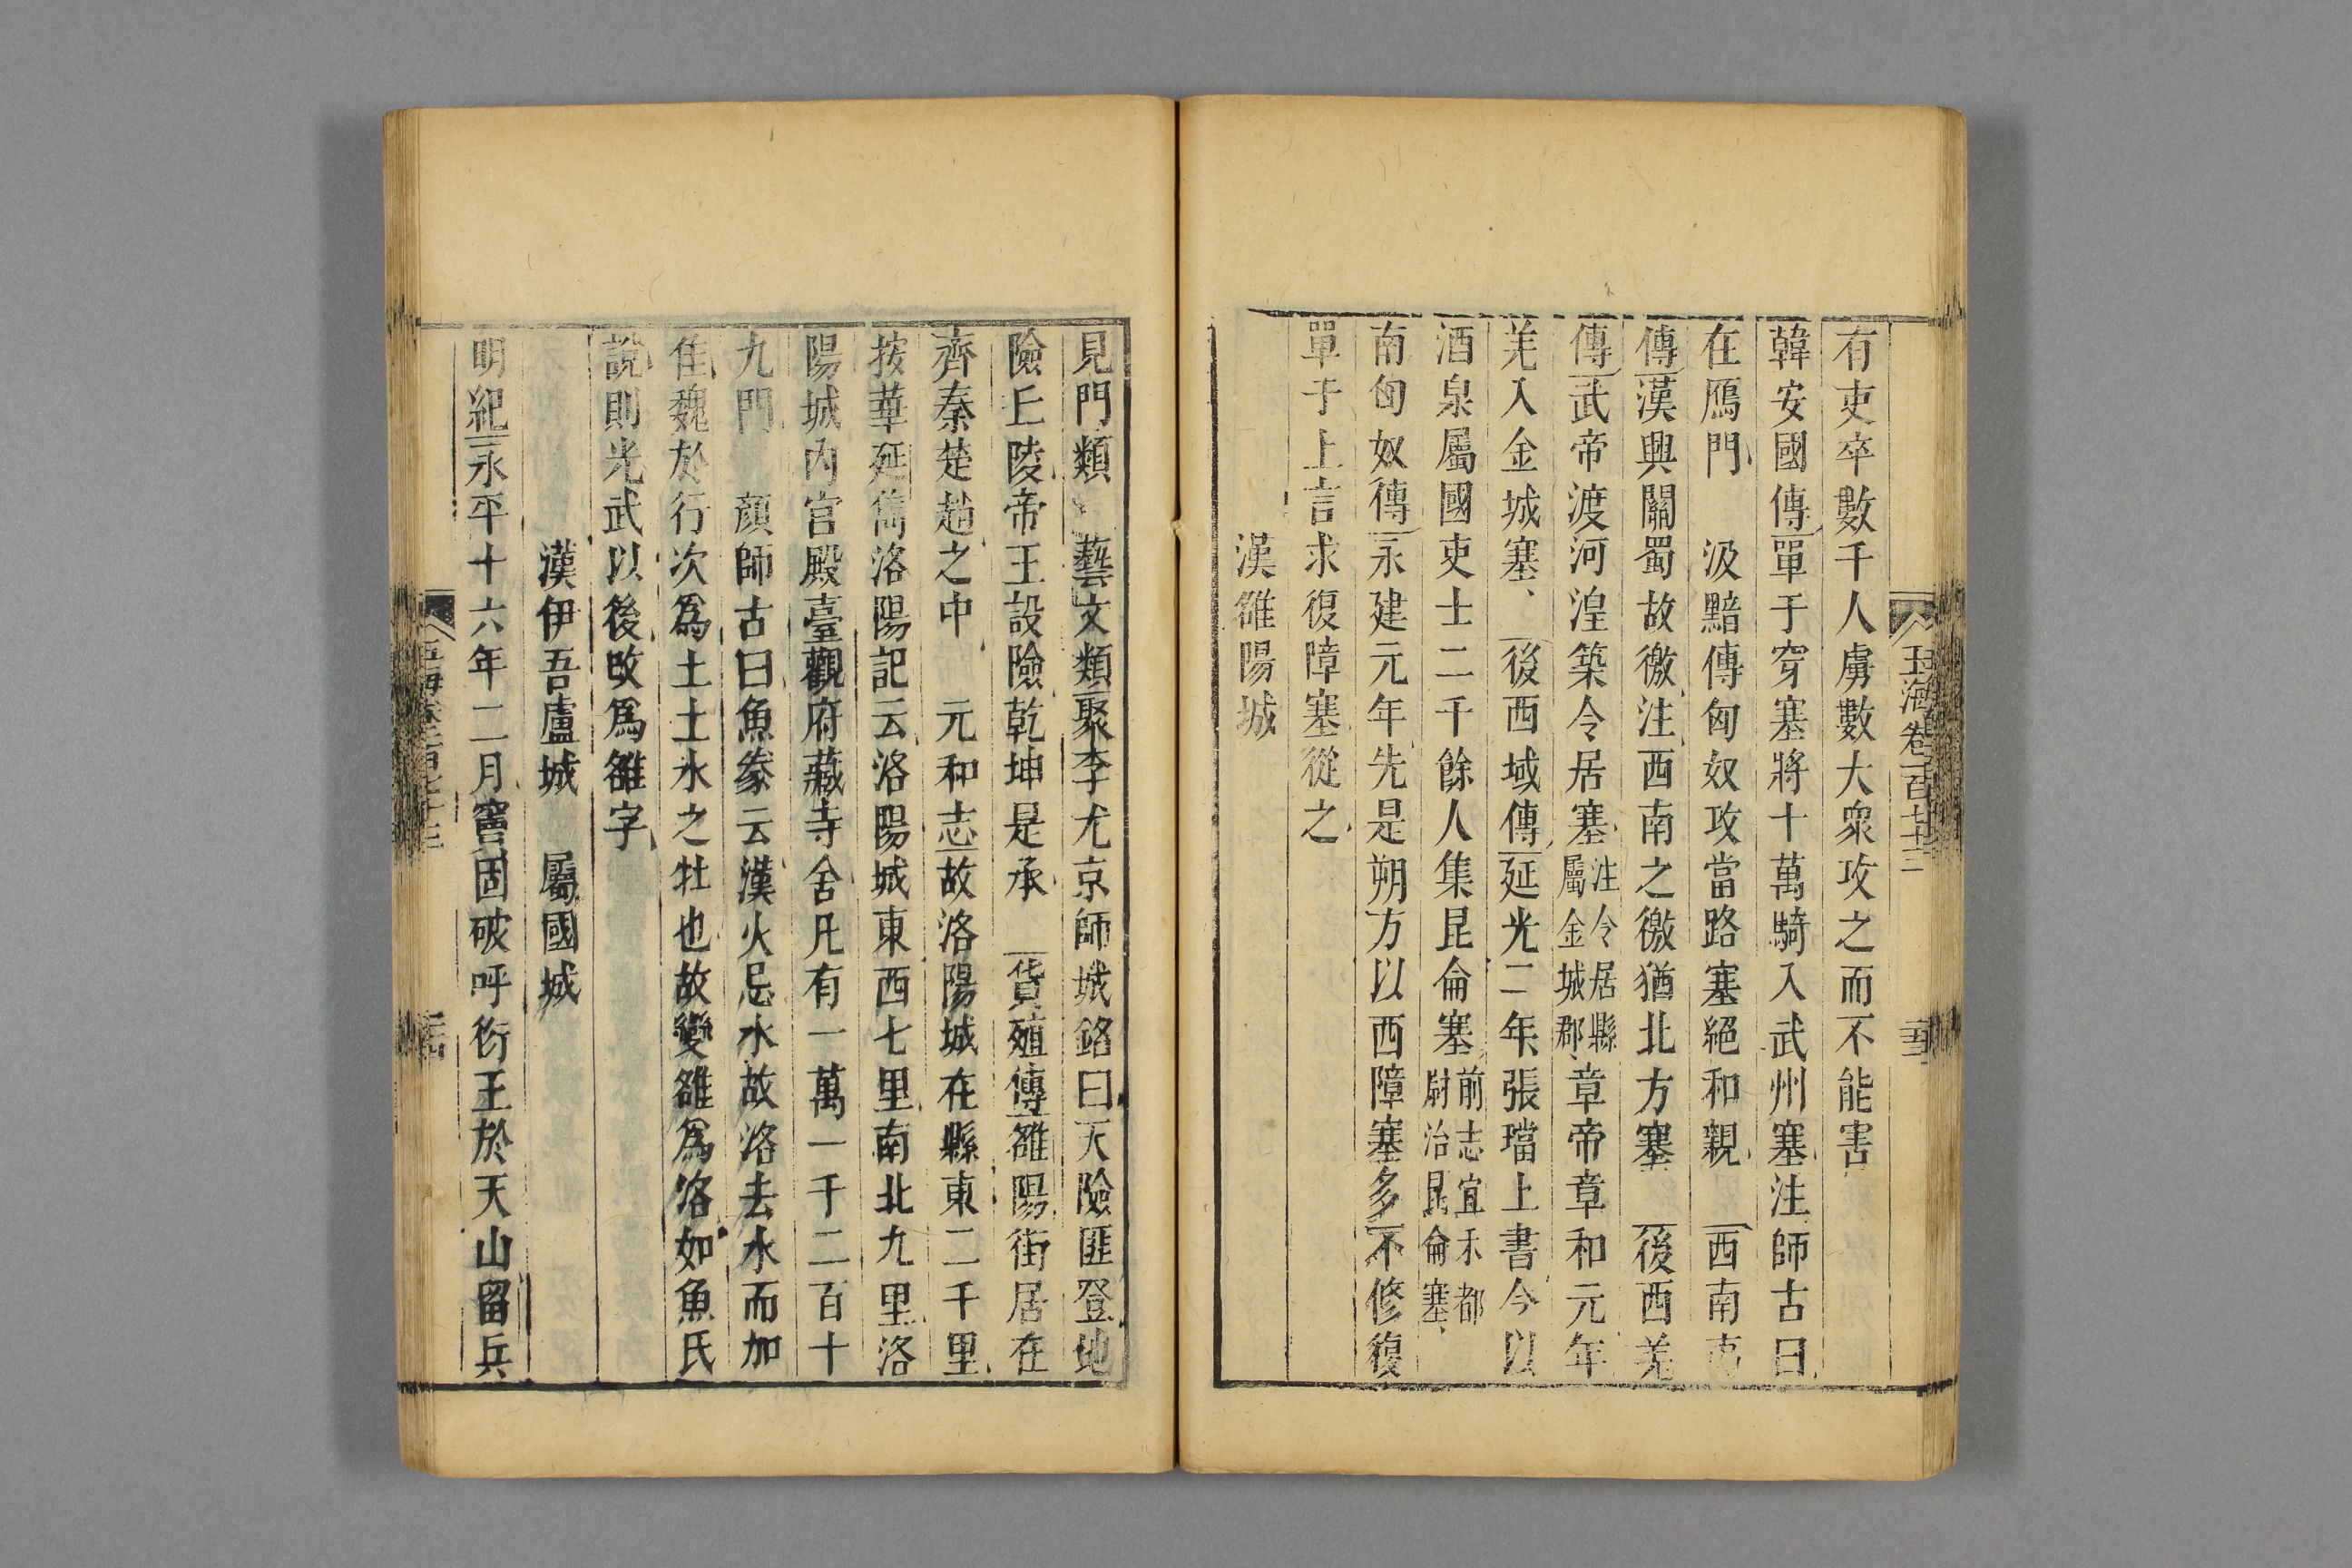 玉海卷一百七十三
有吏卒數千人虜數大衆攻之而不能害
韓安國傳單于穿塞將十萬騎入武州塞注師古曰
在鴈門　汲黯傳匈奴攻當路塞絕和親　西南夷
傳漢興關蜀故徼注西南之徼猶北方塞　後西羌
傳武帝渡河湟築令居塞注令居縣屬金城郡章帝章和元年
羌入金城塞　後西域傳延光二年張璫上書今以
酒泉屬國吏士二千餘人集昆侖塞前志宜禾都尉治昆侖塞
南匈奴傳永建元年先是朔方以西障塞多不修復
單于上言求復障塞從之
漢雒陽城
見門類　藝文類聚李尤京師城銘曰天險匪登地
險丘陵帝王設險乾坤是承　貨殖傳雒陽街居在
齊秦楚趙之中　元和志故洛陽城在縣東二千里
按華延雋洛陽記云洛陽城東西七里南北九里洛
陽城內宮殿臺觀府藏寺舍凡有一萬一千二百十
九門　顏師古曰魚豢云漢火忌水故洛去水而加
隹魏於行次爲土土水之牡也故變雒爲洛如魚氏
說則光武以後改爲雒字
漢伊吾盧城　屬國城
明紀永平十六年二月竇固破呼衍王於天山留兵